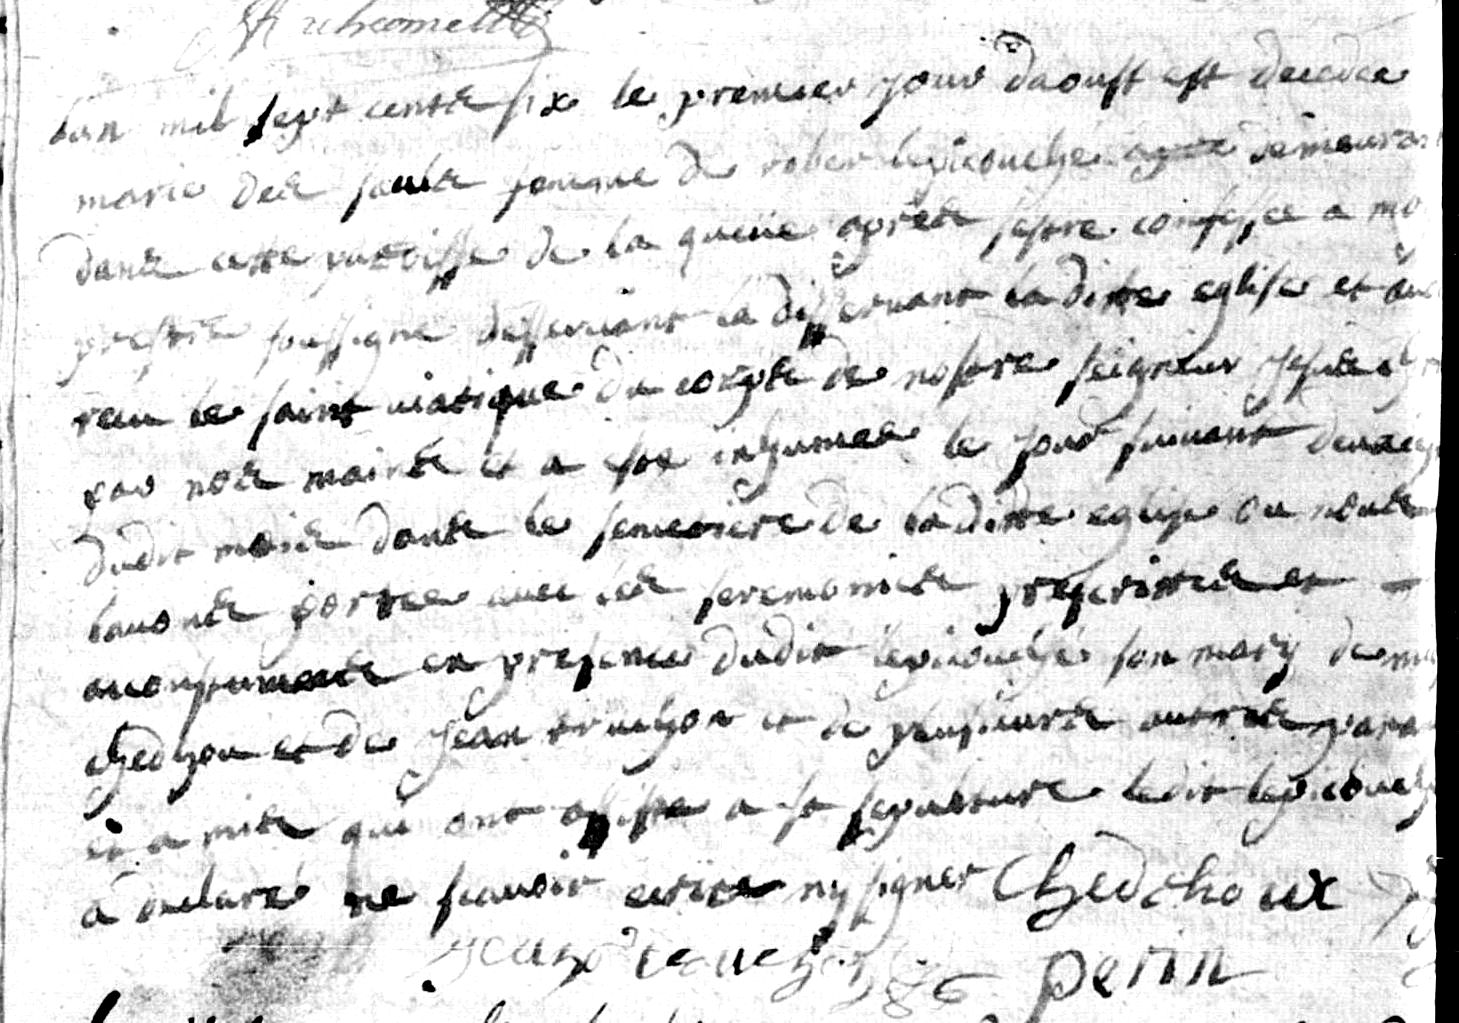 lan mil sept cents six le premier jour daoust est decedee
marie des saults femme de rober lepicouche demeurant
dans cette parroisse de la queue apres sestre confessee a moy
prestre soussigne desservant la desservant laditte eglise et avoir
receu le saint viatique du corps de nostre seigneur Jesus
par nos mains et a este inhumee le jour suivant deuxie
dudit mois dans le semetiere de laditte eglise ou nous
lavons portee avec les seremonies prescrittes et
acoustumees en presence dudit lepicouche son mary de
et de Jean et de plusieurs autres paran
et amis qui ont assiste a sa sepulture ledit lepicouche
a declaré ne scavoir ecrire ny signer Chedhoux
Jean perin